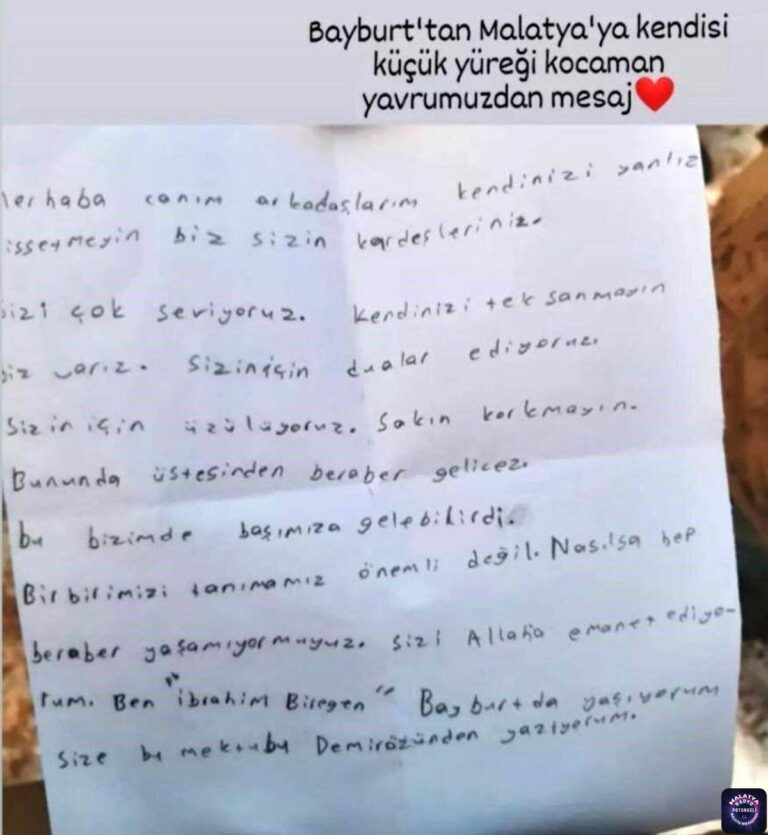 Bayburt'tan Malatya'ya kendisi
küçük yüreği kocaman
yavrumuzdan mesaj❤️
erhaba canım arkadaşlarım kendinizi yanlız
issetmeyin biz sizin kardeşleriniz.
izi çok seviyoruz. Kendinizi tek sanmayın
iz varız. Sizin için dualar ediyoruz.
Sizin için üzülüyoruz. Sakın korkmayın.
Bununda üstesinden beraber gelicez.
bu bizimde başımıza gelebilirdi.
Birbirimizi tanımamız önemli değil. Nasılsa hep
beraber yaşamıyormuyuz. Sizi Allaha emanet ediyo-
rum. Ben "ibrahim Biregen" Bayburtda yaşıyorum
size bu mektubu Demirözünden yazıyorum.
MALATYA
RADYO